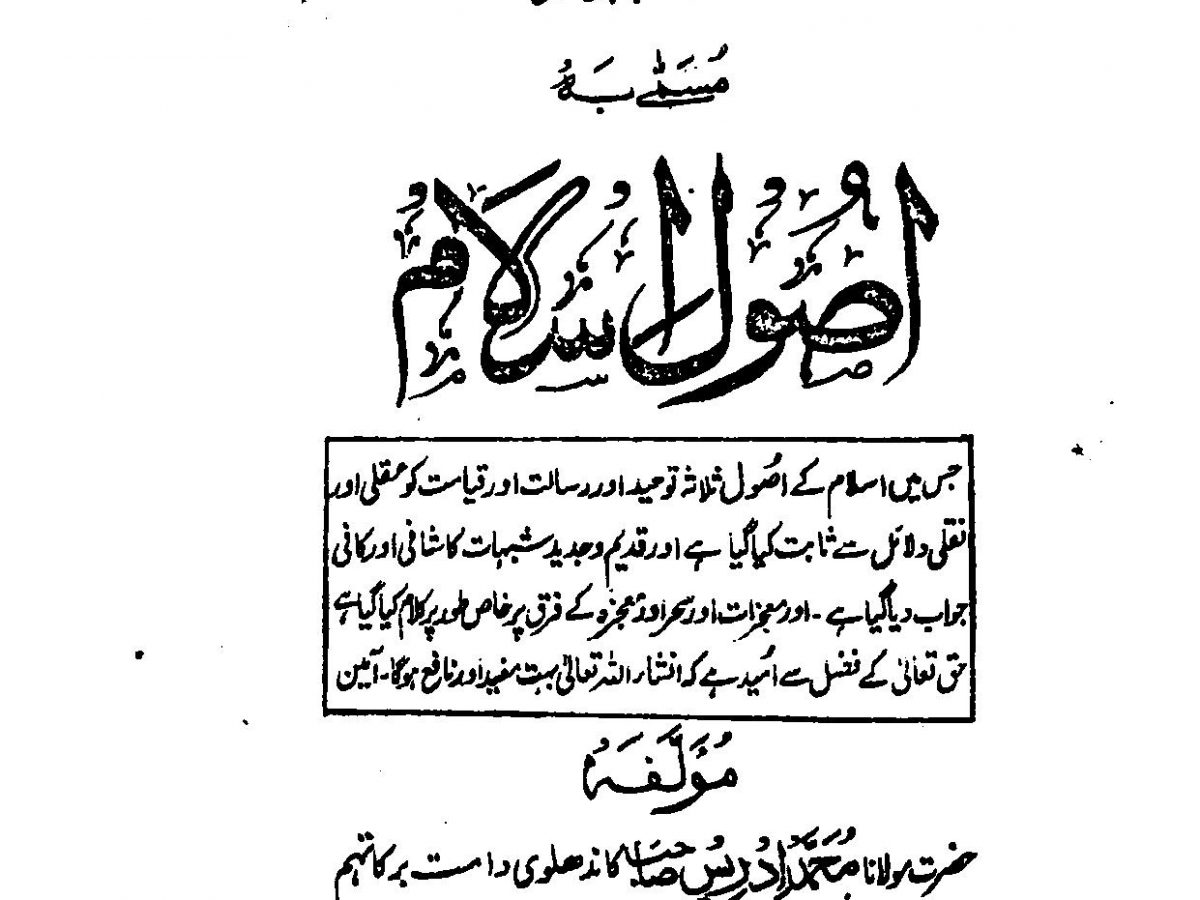 مُسَمّٰے بَہٗ
اصُول اسلام
جس میں اسلام کے اصُول ثلاثہ توحید اور رسالت اور قیامت کو عقلی اور
نقلی دلائل سے ثابت کیا گیا ہے اور قدیم و جدید شبہات کا شافی اور کافی
جواب دیا گیا ہے ۔ اور معجزات اور سحر اور معجزہ کے فرق پر خاص طور پر کلام کیا گیا ہے
حق تعالیٰ کے فضل سے اُمید ہے کہ انشاء اللہ تعالیٰ بہت مفید اور نافع ہوگا۔ آمین
مُؤلَّفَہٗ
حضرت مولانا مُحَمَّد اِدْرِیس صاحب کاندھلوی دامت برکاتہم